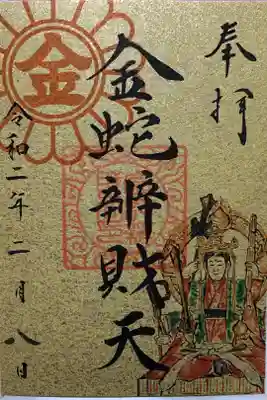 奉拝
金
金蛇辨財天
令和二年二月八日